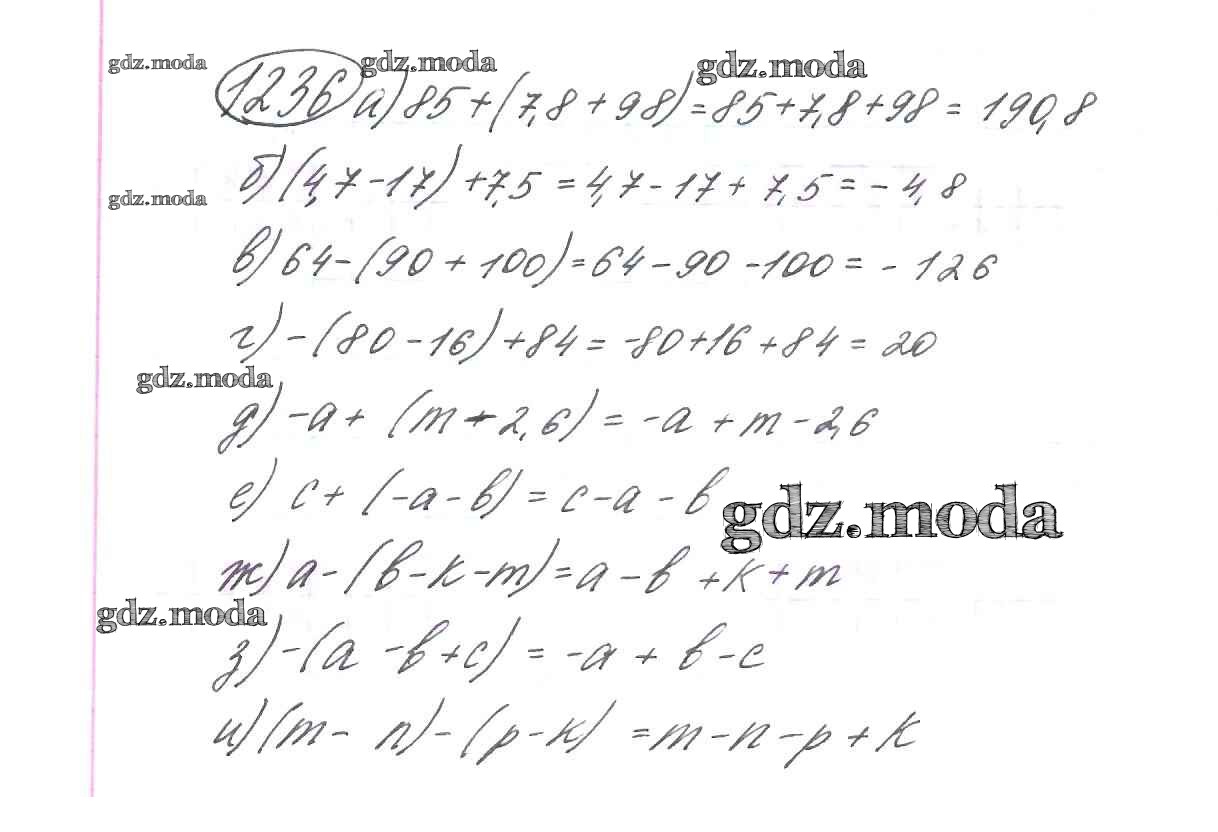 gdz.moda gdz.moda gdz.moda
1236 а) 85 + (7,8 + 98) = 85 + 7,8 + 98 = 190,8
б) (4,7 - 17) + 7,5 = 4,7 - 17 + 7,5 = - 4,8
gdz.moda
в) 64 - (90 + 100) = 64 - 90 - 100 = - 126
г) - (80 - 16) + 84 = -80 + 16 + 84 = 20
gdz.moda
д) -a + (m - 2,6) = -a + m - 2,6
е) c + (-a - b) = c - a - b
gdz.moda
ж) a - (b - k - m) = a - b + k + m
gdz.moda
з) - (a - b + c) = -a + b - c
и) (m - n) - (p - k) = m - n - p + k